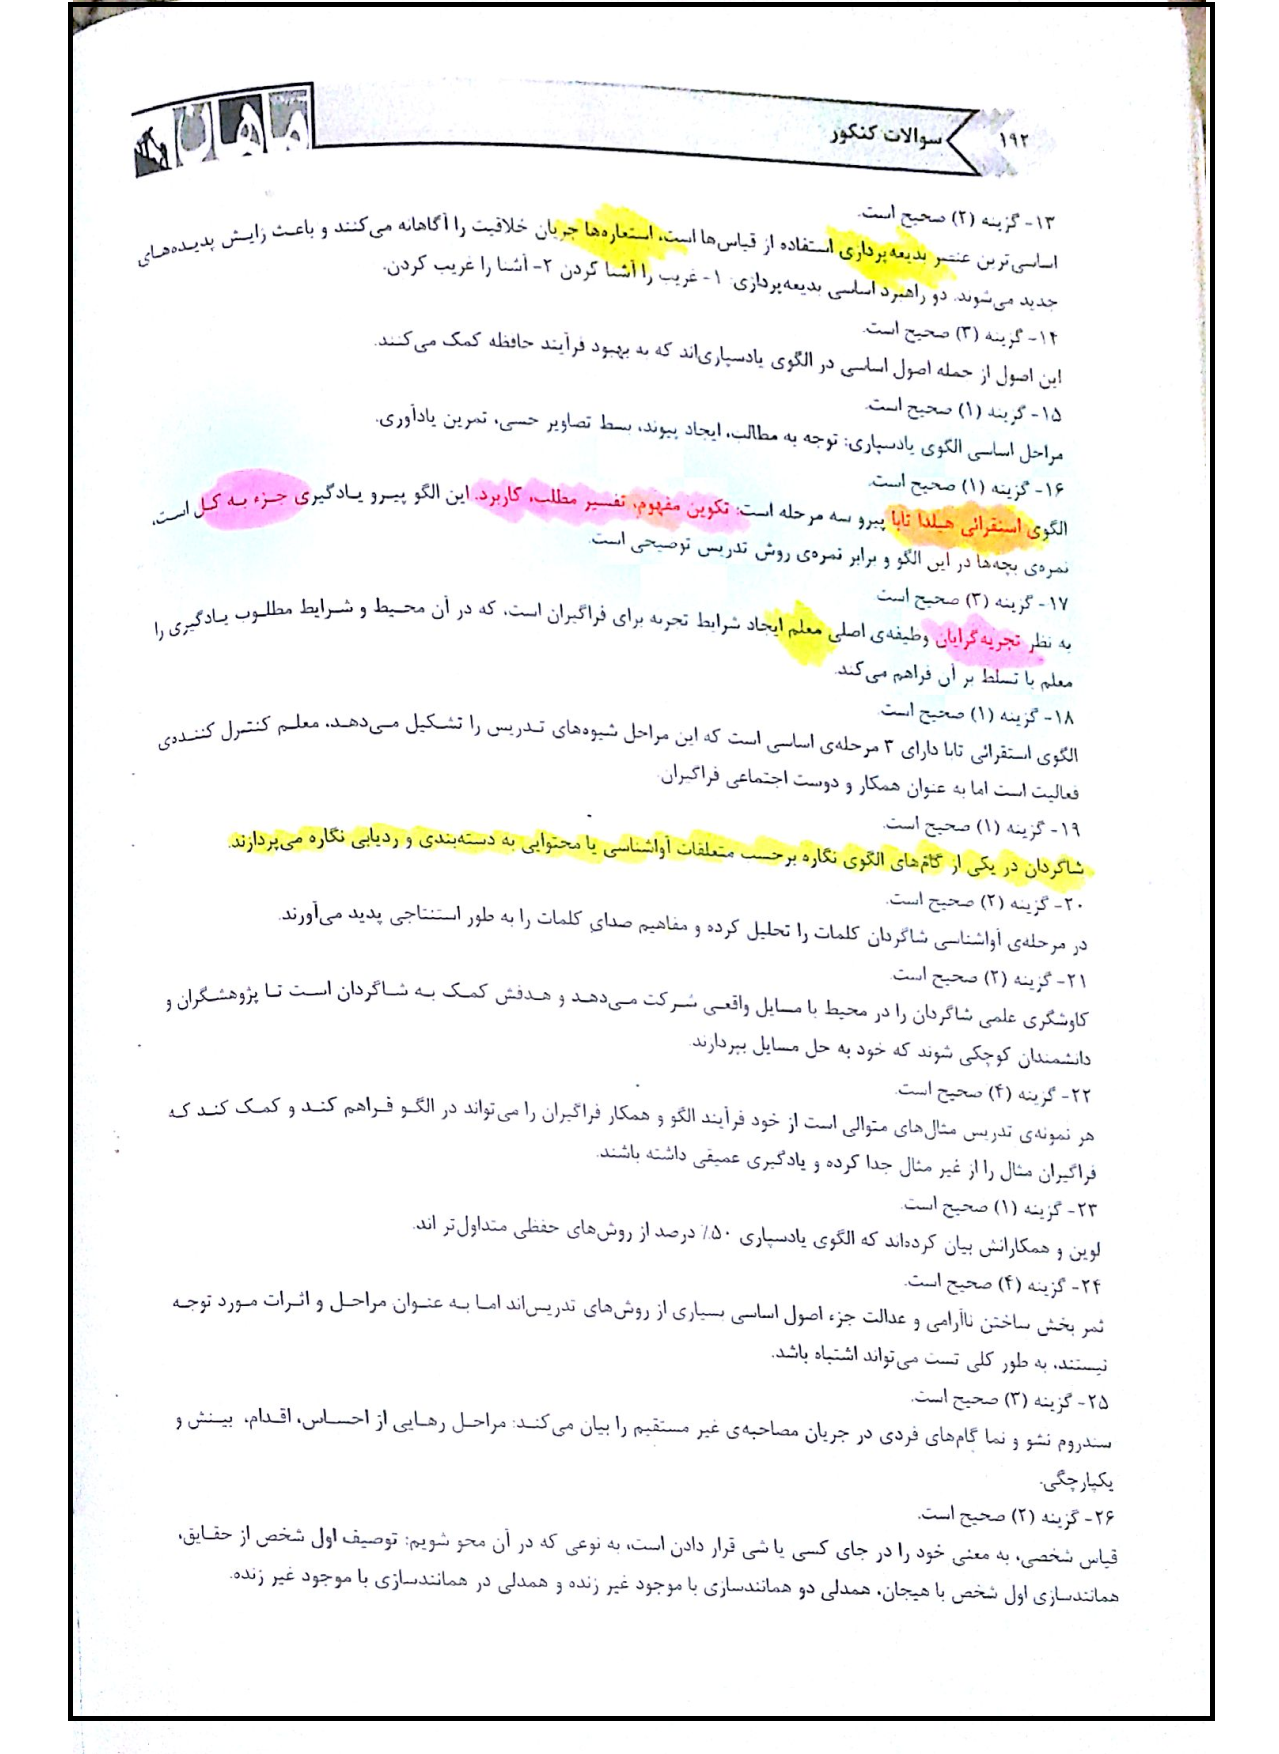 ۱۹۲
سوالات کنکور
ماهان
۱۳- گزینه (۲) صحیح است.
اساسی‌ترین عنصر بدیعه‌پردازی استفاده از قیاس‌ها است، استعاره‌ها جریان خلاقیت را آگاهانه می‌کنند و باعث زایش پدیده‌های
جدید می‌شوند. دو راهبرد اساسی بدیعه‌پردازی: ۱- غریب را آشنا کردن ۲- آشنا را غریب کردن.
۱۴- گزینه (۳) صحیح است.
این اصول از جمله اصول اساسی در الگوی یادسپاری‌اند که به بهبود فرآیند حافظه کمک می‌کنند.
۱۵- گزینه (۱) صحیح است.
مراحل اساسی الگوی یادسپاری: توجه به مطالب، ایجاد پیوند، بسط تصاویر حسی، تمرین یادآوری.
۱۶- گزینه (۱) صحیح است.
الگوی استقرائی هیلدا تابا پیرو سه مرحله است: تکوین مفهوم، تفسیر مطلب، کاربرد. این الگو پیرو یادگیری جزء به کل است،
نمره‌ی بچه‌ها در این الگو و برابر نمره‌ی روش تدریس توضیحی است.
۱۷- گزینه (۳) صحیح است
به نظر تجربه‌گرایان وظیفه‌ی اصلی معلم ایجاد شرایط تجربه برای فراگیران است، که در آن محیط و شرایط مطلوب یادگیری را
معلم با تسلط بر آن فراهم می‌کند.
۱۸- گزینه (۱) صحیح است.
الگوی استقرائی تابا دارای ۳ مرحله‌ی اساسی است که این مراحل شیوه‌های تدریس را تشکیل می‌دهد، معلم کنترل کننده‌ی
فعالیت است اما به عنوان همکار و دوست اجتماعی فراگیران.
۱۹- گزینه (۱) صحیح است.
شاگردان در یکی از گام‌های الگوی نگاره برحسب متعلقات آواشناسی یا محتوایی به دسته‌بندی و ردیابی نگاره می‌پردازند.
۲۰- گزینه (۲) صحیح است.
در مرحله‌ی آواشناسی شاگردان کلمات را تحلیل کرده و مفاهیم صدای کلمات را به طور استنتاجی پدید می‌آورند.
۲۱- گزینه (۲) صحیح است
کاوشگری علمی شاگردان را در محیط با مسایل واقعی شرکت می‌دهد و هدفش کمک به شاگردان است تا پژوهشگران و
دانشمندان کوچکی شوند که خود به حل مسایل بپردازند.
۲۲- گزینه (۴) صحیح است.
هر نمونه‌ی تدریس مثال‌های متوالی است از خود فرآیند الگو و همکار فراگیران را می‌تواند در الگو فراهم کند و کمک کند که
فراگیران مثال را از غیر مثال جدا کرده و یادگیری عمیقی داشته باشند.
۲۳- گزینه (۱) صحیح است.
لوین و همکارانش بیان کرده‌اند که الگوی یادسپاری ۵۰٪ درصد از روش‌های حفظی متداول‌تر اند.
۲۴- گزینه (۴) صحیح است.
ثمر بخش ساختن ناآرامی و عدالت جزء اصول اساسی بسیاری از روش‌های تدریس‌اند اما به عنوان مراحل و اثرات مورد توجه
نیستند، به طور کلی تست می‌تواند اشتباه باشد.
۲۵- گزینه (۳) صحیح است.
سندروم نشو و نما گام‌های فردی در جریان مصاحبه‌ی غیر مستقیم را بیان می‌کند: مراحل رهایی از احساس، اقدام، بینش و
یکپارچگی.
۲۶- گزینه (۲) صحیح است.
قیاس شخصی، به معنی خود را در جای کسی یا شی قرار دادن است، به نوعی که در آن محو شویم: توصیف اول شخص از حقایق،
همانندسازی اول شخص با هیجان، همدلی دو همانندسازی با موجود غیر زنده و همدلی در همانندسازی با موجود غیر زنده.